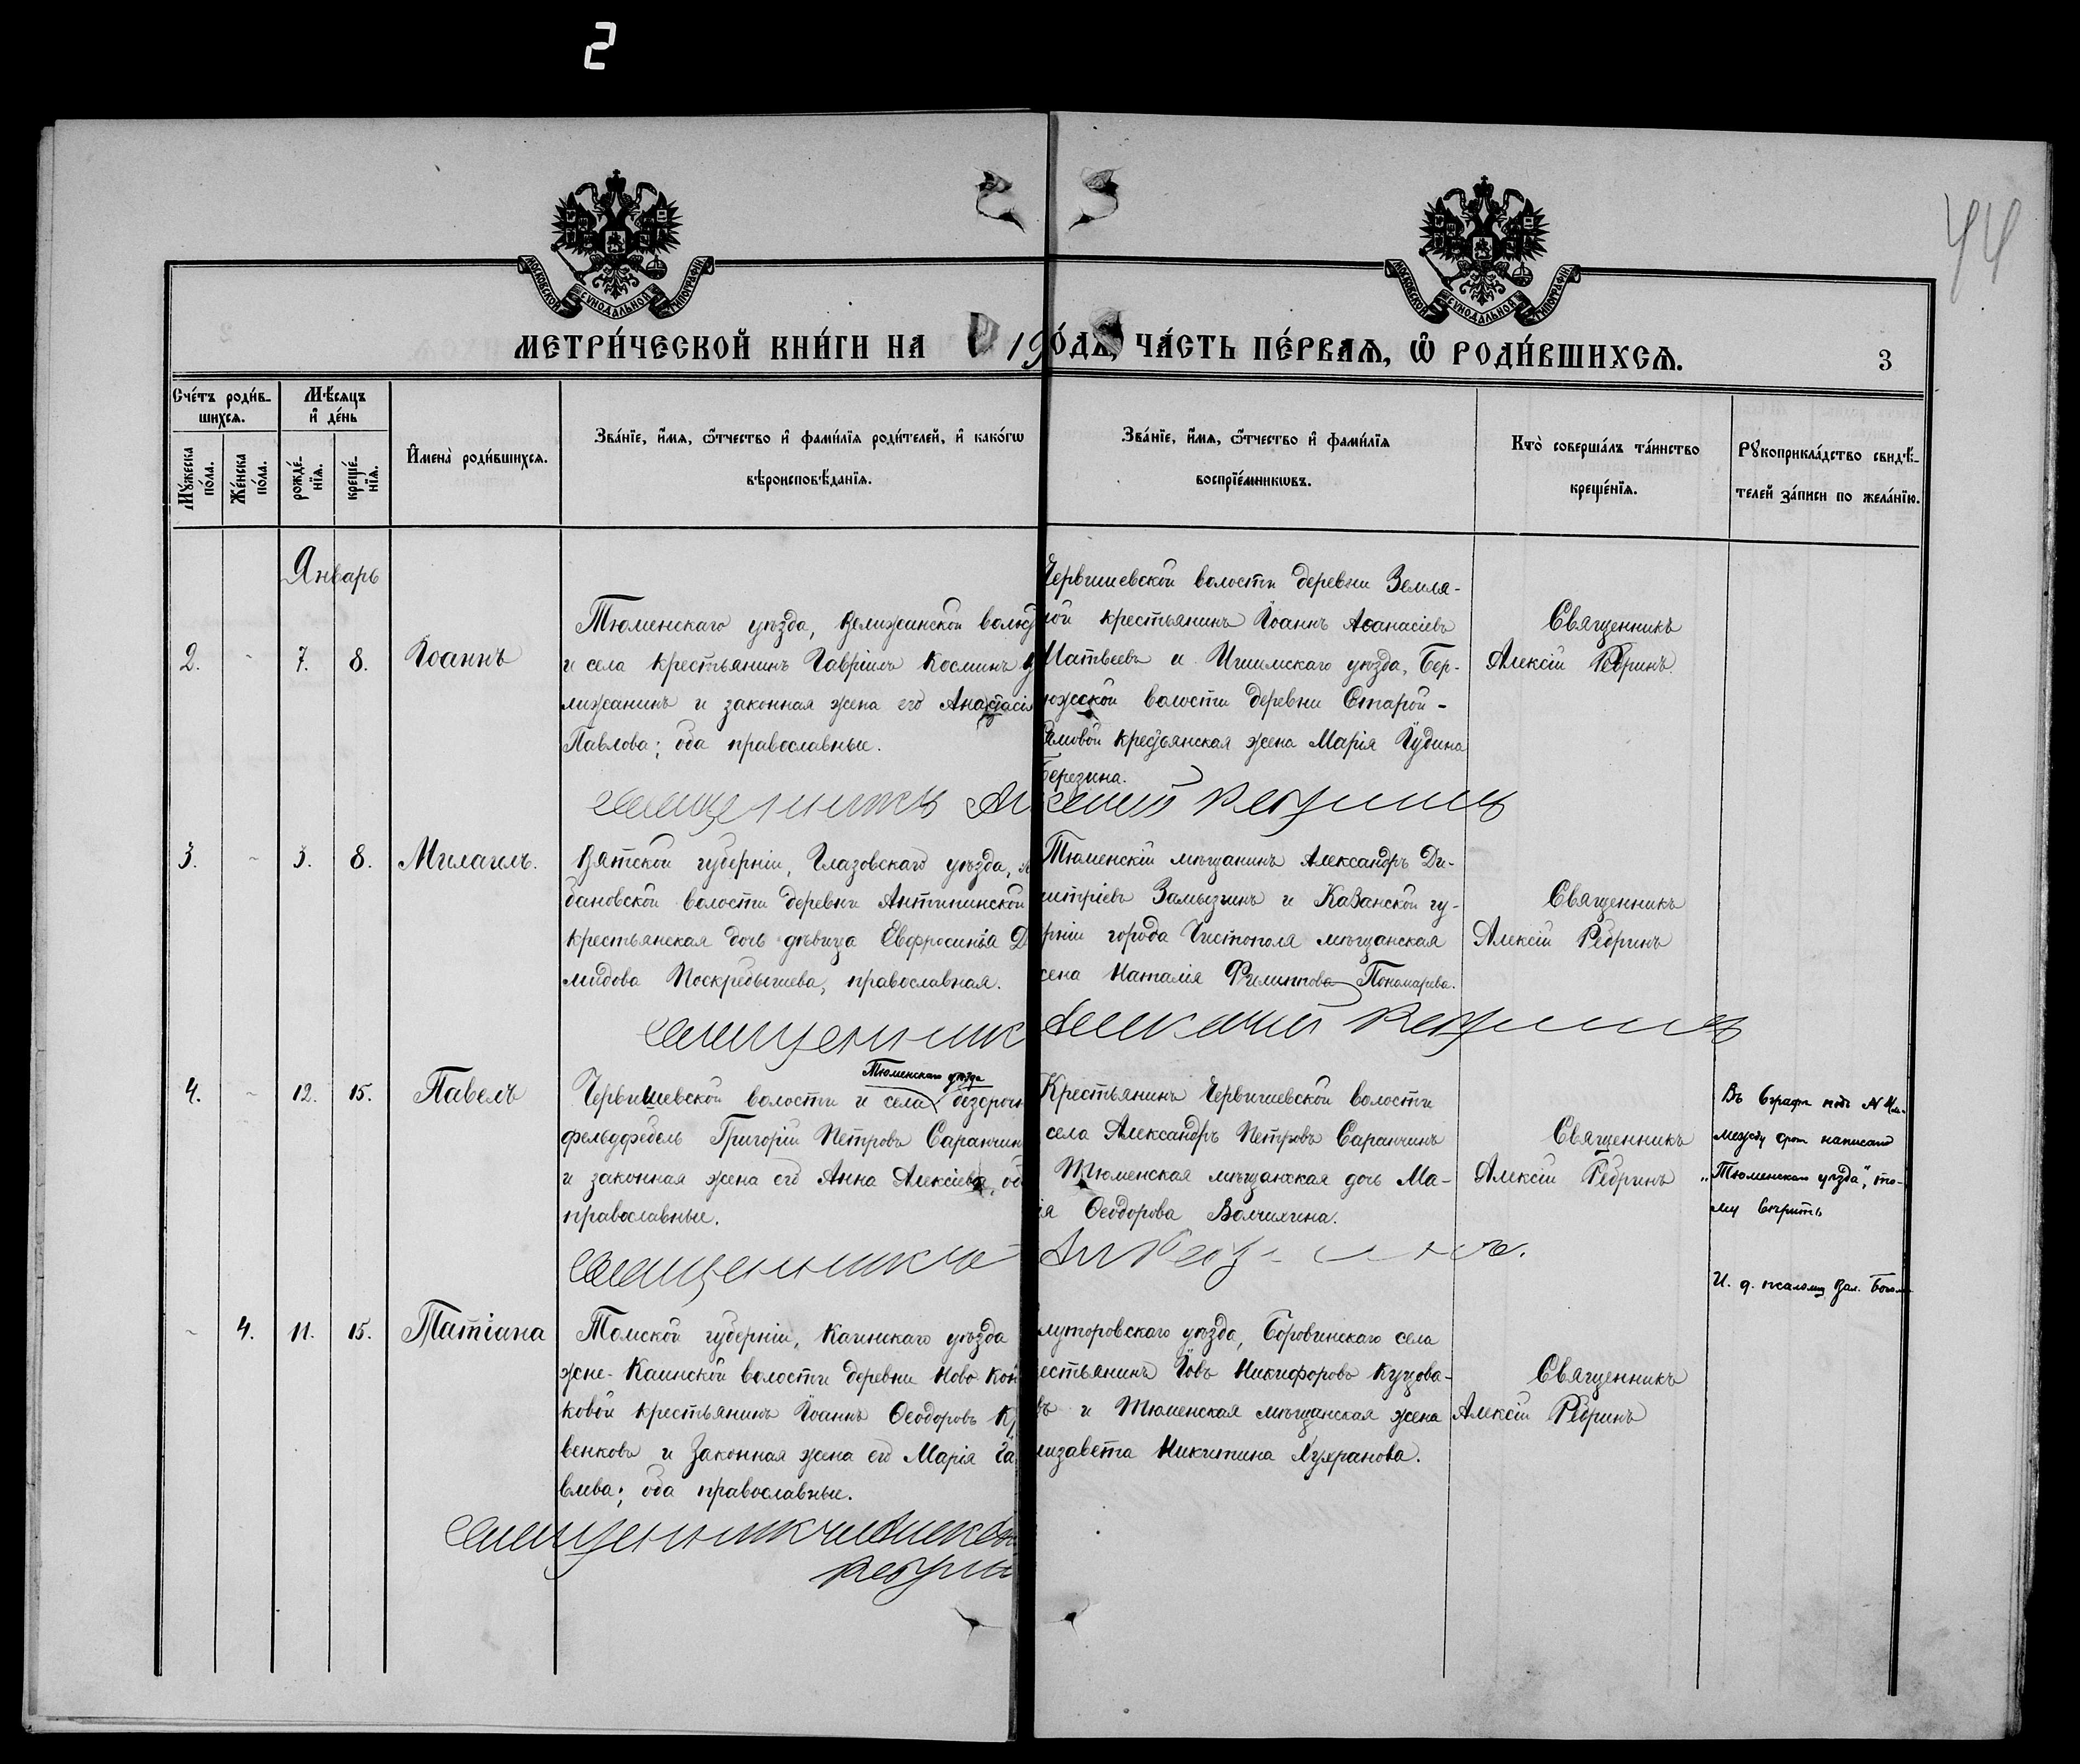 2
44
МОСКОВСКОЙ СУНОДАЛЬНОЙ ТИПОГРАФІИ
МОСКОВСКОЙ СУНОДАЛЬНОЙ ТИПОГРАФІИ
МЕТРИ́ЧЕСКОЙ КНИ́ГИ НА 19
О́ДЪ, ЧА́СТЬ ПЕ́РВАѦ, Ѡ҆ РОДИ́ВШИХСѦ.
3
Сче́тъ роди́в-
шихсѧ.
Мѣ́сѧцъ
и҆ де́нь
Мꙋ́жеска по́ла.
Же́нска по́ла.
рожде́-
нїѧ.
креще́-
нїѧ.
И҆мена̀ роди́вшихсѧ.
Зва́нїе, и҆́мѧ, ѻ҆́тчество и҆ фами́лїѧ роди́телей, и҆ како́гѡ
вѣроисповѣ́данїѧ.
Зва́нїе, и҆́мѧ, ѻ҆́тчество и҆ фами́лїѧ
воспрїе́мникѡвъ.
Кто̀ соверша́лъ та́инство
креще́нїѧ.
Рꙋкоприкла́дство свидѣ́-
телей за́писи по жела́нїю.
Январь
2. - 7. 8. Іоаннъ
Тюменскаго уѣзда, Велижанской волос
и села крестьянинъ Гавріилъ Косминъ
лижанинъ и законная жена его Анастасія
Павлова; оба православные.
Червишевской волости деревни Земля-
ной крестьянинъ Іоаннъ Аѳанасіевъ
Матвѣевъ и Ишимскаго уѣзда, Бер-
южской волости деревни Старой-
крестьянская жена Марія Іудина
Березина.
Священникъ
Алексій Ребринъ.
Священникъ Алексій Ребринъ
3. - 3. 8. Михаилъ.
Вятской губерніи, Глазовскаго уѣзда,
бановской волости деревни Антипинской
крестьянская дочь дѣвица Евфросинія Д
мидова Поскребышева, православная.
Тюменскій мѣщанинъ Александръ Ди-
митріевъ Замызгинъ и Казанской гу-
рніи города Чистополя мѣщанская
жена Наталія Филиппова Пономарева.
Священникъ
Алексій Ребринъ
Священник Алексій Ребринъ
4. - 12. 15. Павелъ
Тюменскаго уѣзда
Червишевской волости и села безсрочн
фельдфебель Григорій Петровъ Саранчин
и законная жена его Анна Алексіева, об
православные.
Крестьянинъ Червишевской волости
села Александръ Петровъ Саранчинъ
Тюменская мѣщанская дочь Ма-
ія Ѳеодорова Волчихина.
Священникъ
Алексій Ребринъ
Въ графѣ подъ №
между строк написано
„Тюменскаго уѣзда", то-
му вѣрить
И. д. псаломщ. Вал.
Священникъ Ал Ребринъ.
- 4. 11. 15. Татіана
Томской губерніи, Каинскаго уѣзда
жне-Каинской волости деревни Ново Кон
ковой крестьянинъ Іоаннъ Ѳеодоровъ К
венковъ и законная жена его Марія
влева; оба православные.
луторовскаго уѣзда, Боровинскаго села
естьянинъ Іовъ Никифоровъ Куцова-
въ и Тюменская мѣщанская жена
лизавета Никитина Кухранова.
Священникъ
Алексій Ребринъ
Священникъ Алексій
Ребрин